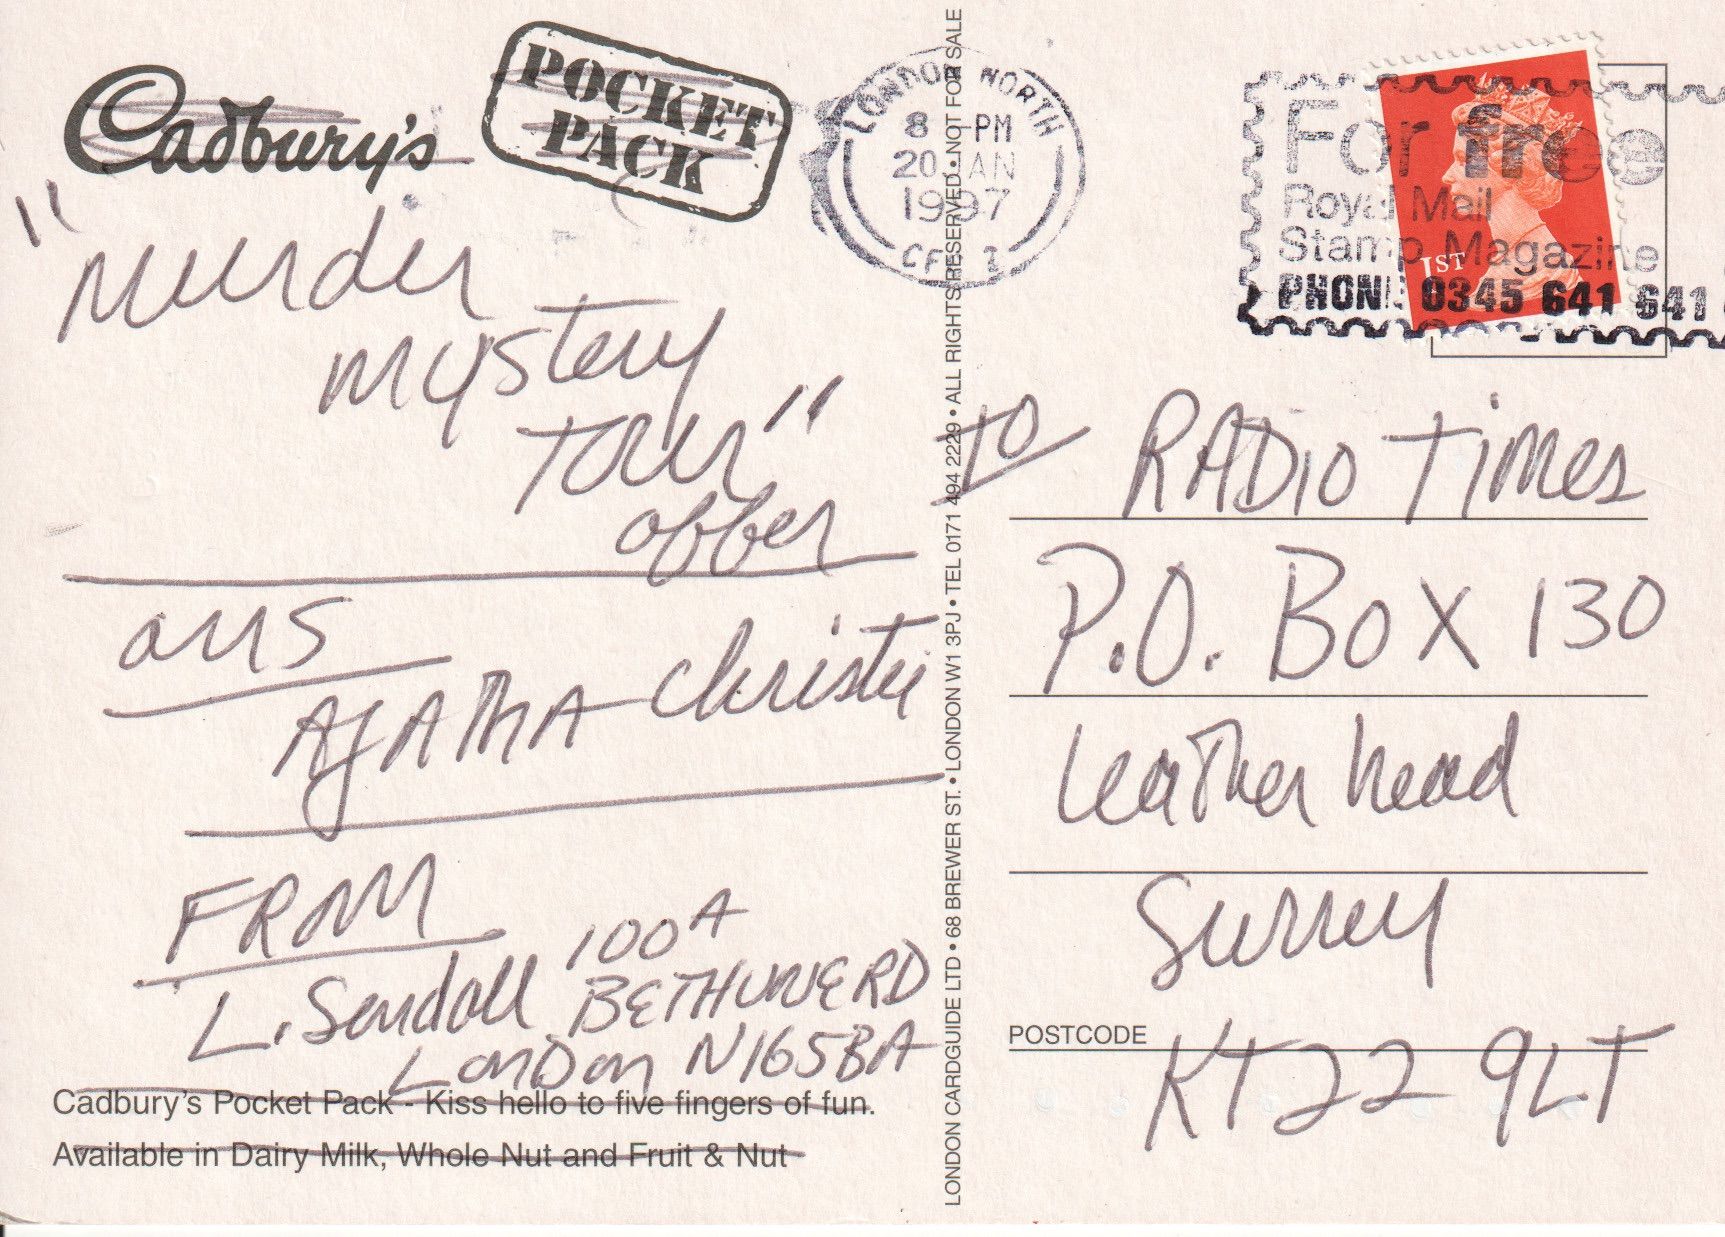 Cadbury's
POCKET
PACK
"Murder
mystery
Tour"
offer
ans
AgAThA Christie
FROM
L. Sendall 100A
BETHUNE RD
LonDon N165BA
Cadbury's Pocket Pack - Kiss hello to five fingers of fun.
Available in Dairy Milk, Whole Nut and Fruit & Nut
LONDON CARDGUIDE LTD • 68 BREWER ST. • LONDON W1 3PJ • TEL 0171 494 2229 • ALL RIGHTS RESERVED • NOT FOR SALE
LONDON NORTH
8 PM
20 JAN
1997
For free
Royal Mail
Stamp Magazine
PHONE 0345 641 641
1ST
TO RADIO Times
P.O. BOX 130
Leatherhead
Surrey
POSTCODE
KT22 9LT